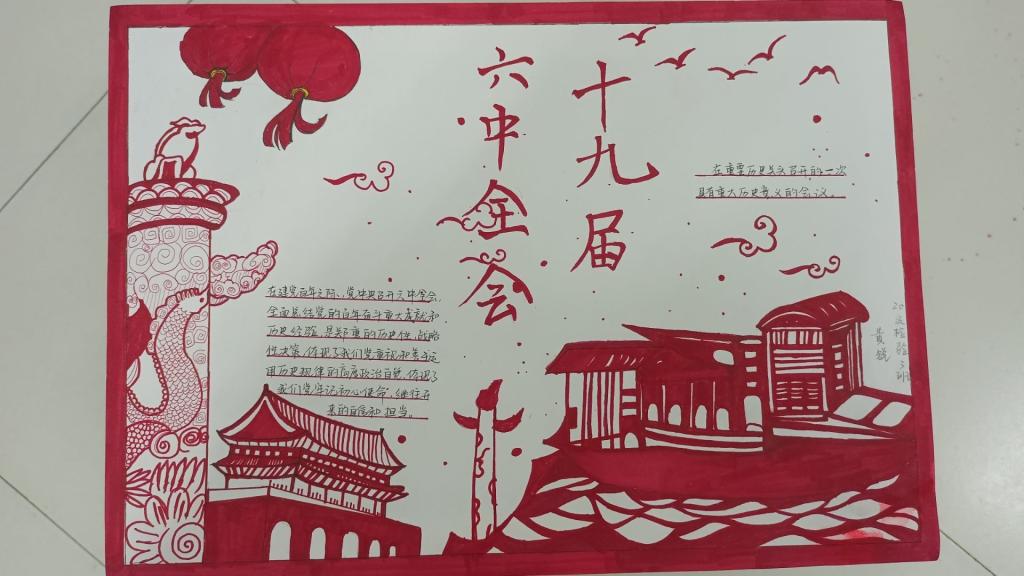 十九届
六中全会
在重要历史关头召开的一次
具有重大历史意义的会议。
在建党百年之际,党中央召开六中全会,
全面总结党的百年奋斗重大成就和
历史经验,是郑重的历史性、战略
性决策,体现了我们党重视和善于运
用历史规律的高度政治自觉,体现了
我们党牢记初心使命、继往开
来的自信和担当。
20医检验3班
黄镜